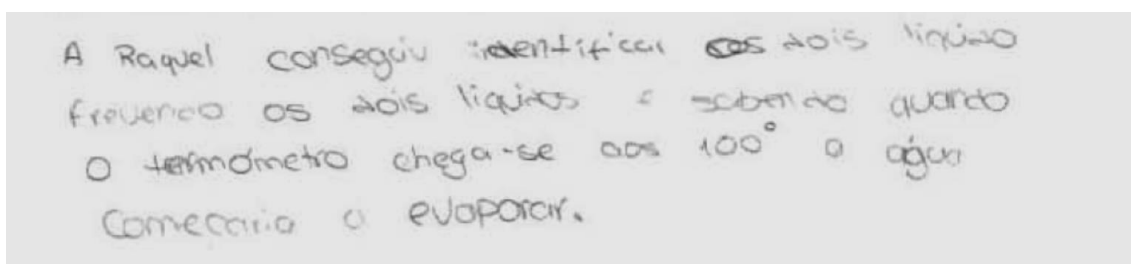 A Raquel conseguiu identificar os dois liquido
frevendo os dois liquidos e sabendo quando
o termómetro chega-se aos 100° a água
Comecaria a evaporar.